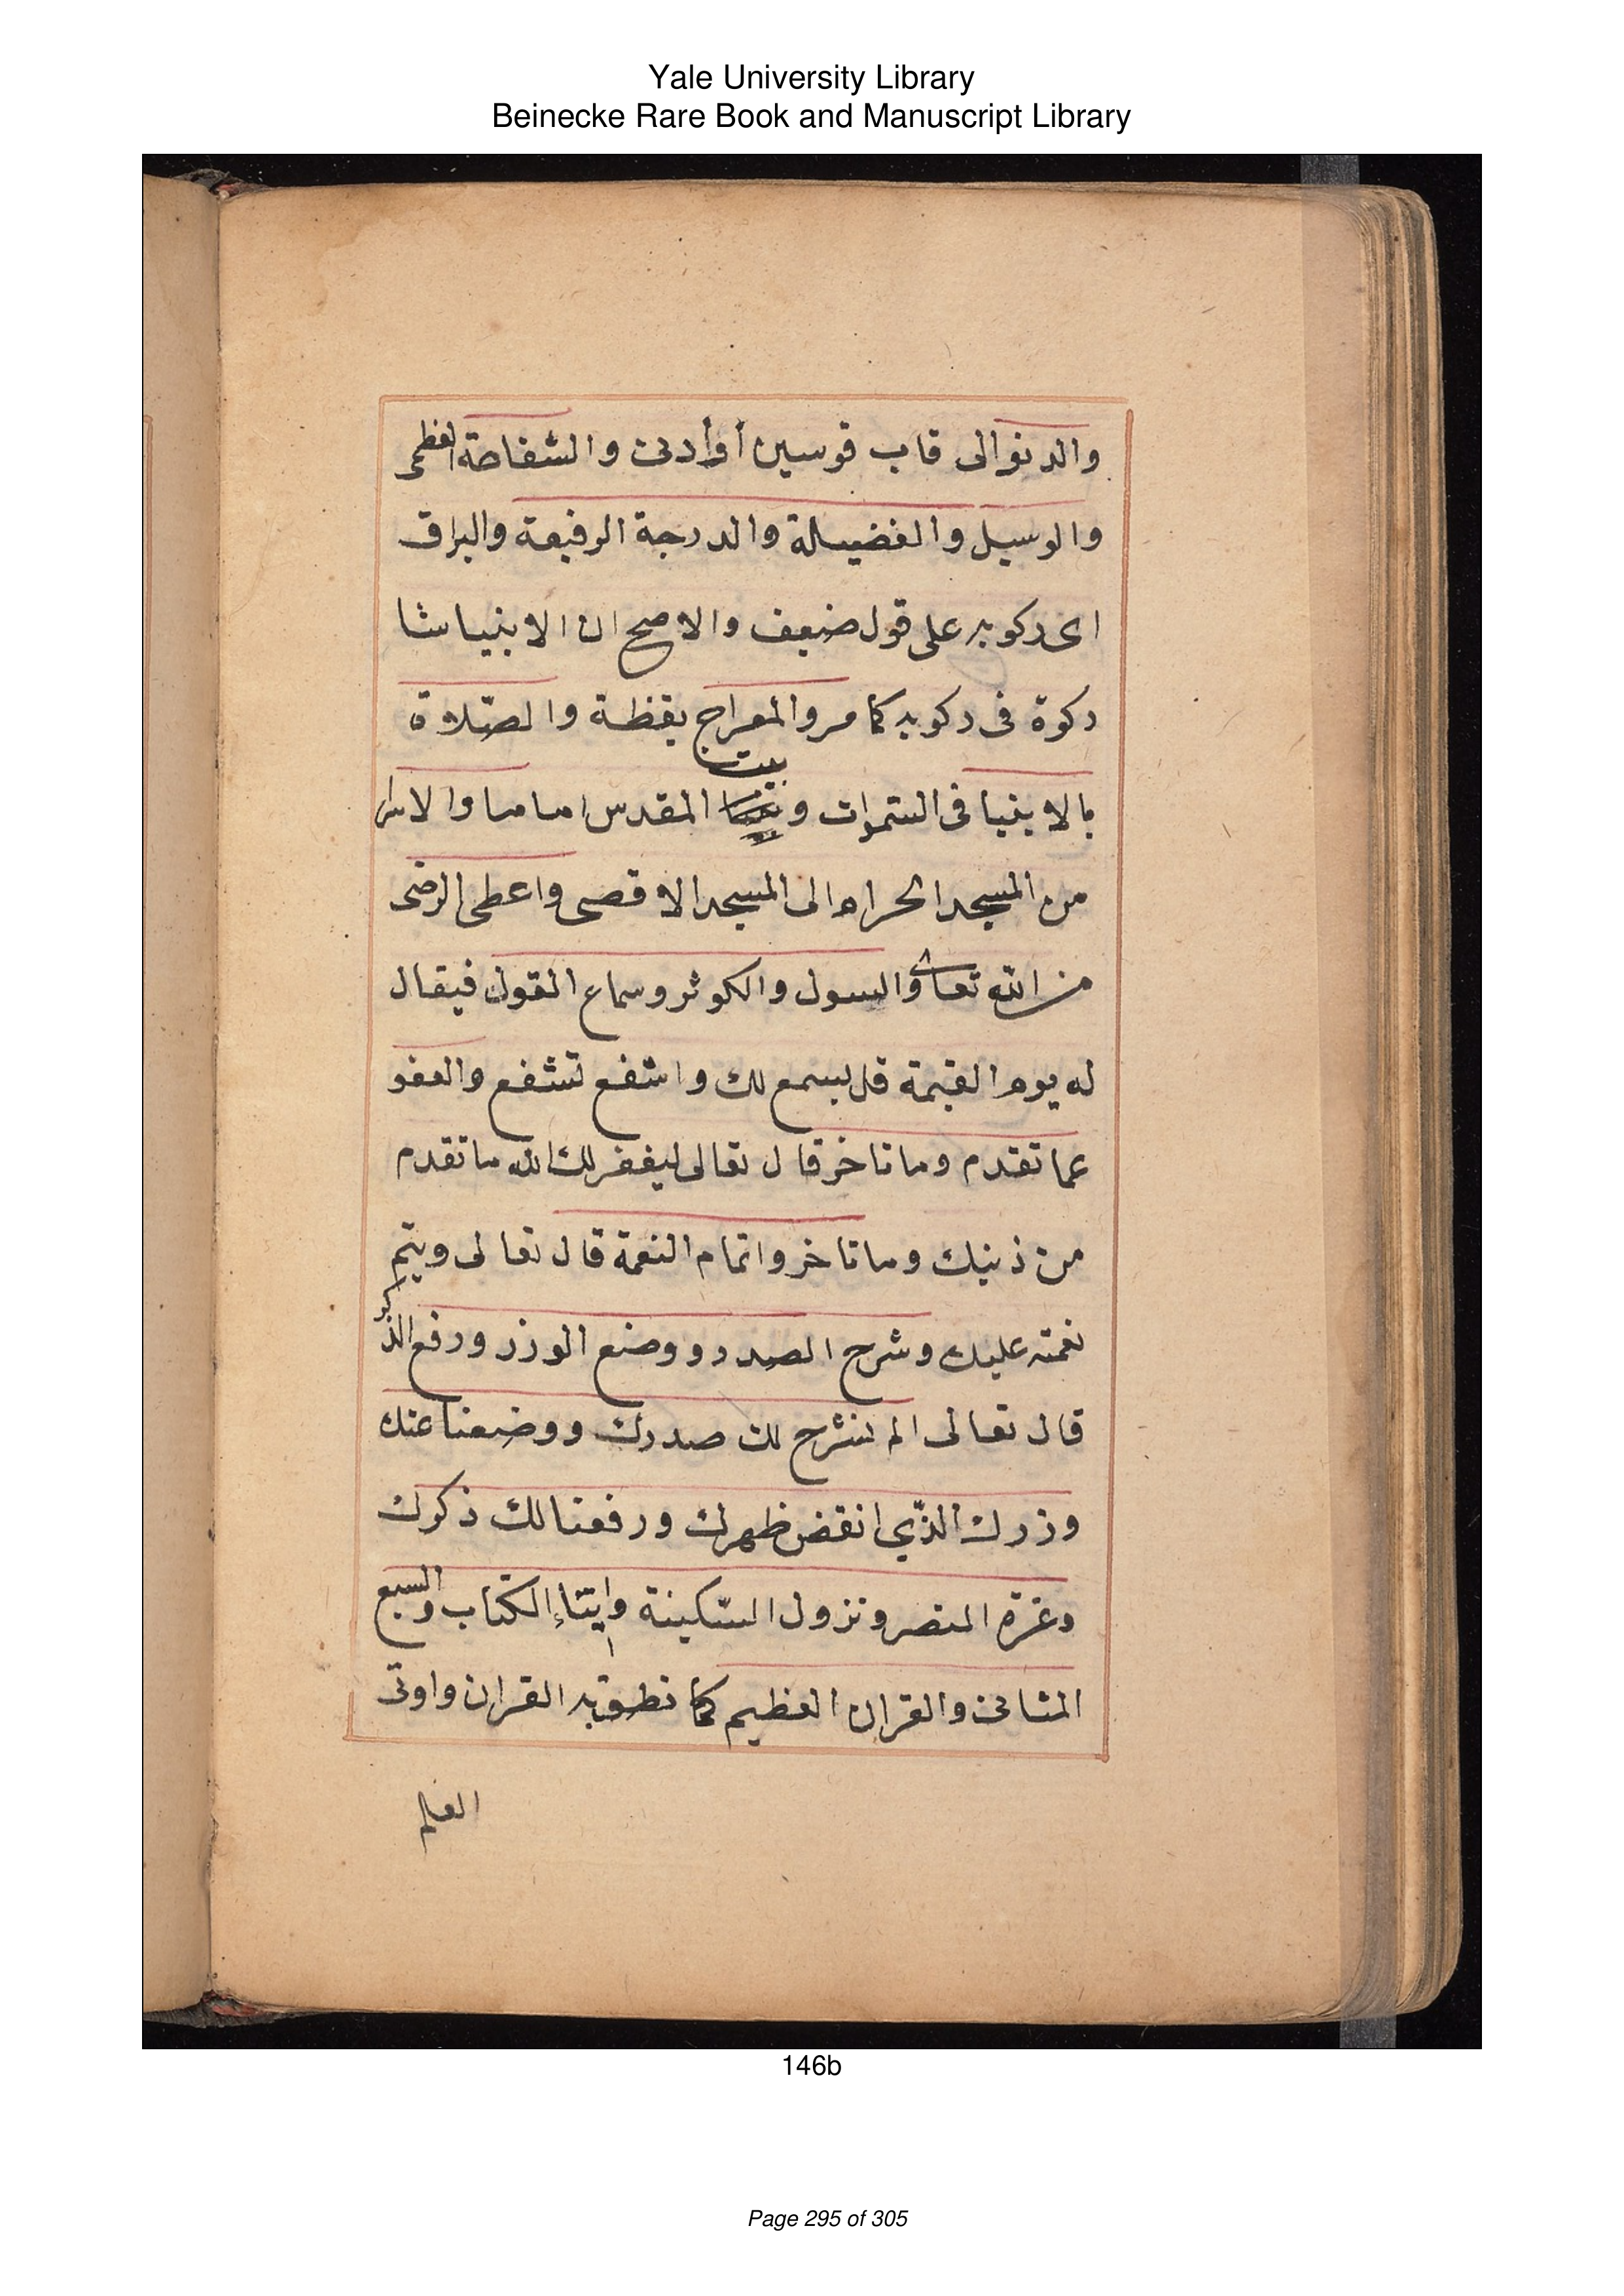 Yale University Library
Beinecke Rare Book and Manuscript Library
والدنوالى قاب قوسين أوأدنى والشفاعة العظمى
والوسيل والفضيلة والدرجة الرفيعة والبراق
اى ركوبه على قول ضعيف والاصح ان الانبياشا
ركوة فى ركوبه كامر والمعراج يقظة والصّلاة
بالانبيا فى السّموات و بيت المقدس اماما والاسرا
من المسجد الحرام الى المسجد الاقصى واعطى الرضى
من الله تعالى والسول والكوثر وسماع القول فيقال
له يوم القيمة قل يسمع لك واشفع تشفع والعفو
عما تقدم وماتاخر قال تعالى ليغفرلك الله ماتقدم
من ذنبك وماتاخر واتمام النعمة قال تعالى ويتم
نعمته عليك وشرح الصدر و ووضع الوزر ورفع الذكر
قال تعالى الم نشرح لك صدرك ووضعنا عنك
وزرك الذّي انقض ظهرك ورفعنا لك ذكرك
وعزة النصر ونزول السّكينة وإيتاءالكتاب والسبع
المثانى والقران العظيم كما نطق به القران واوتى
العلم
146b
Page 295 of 305